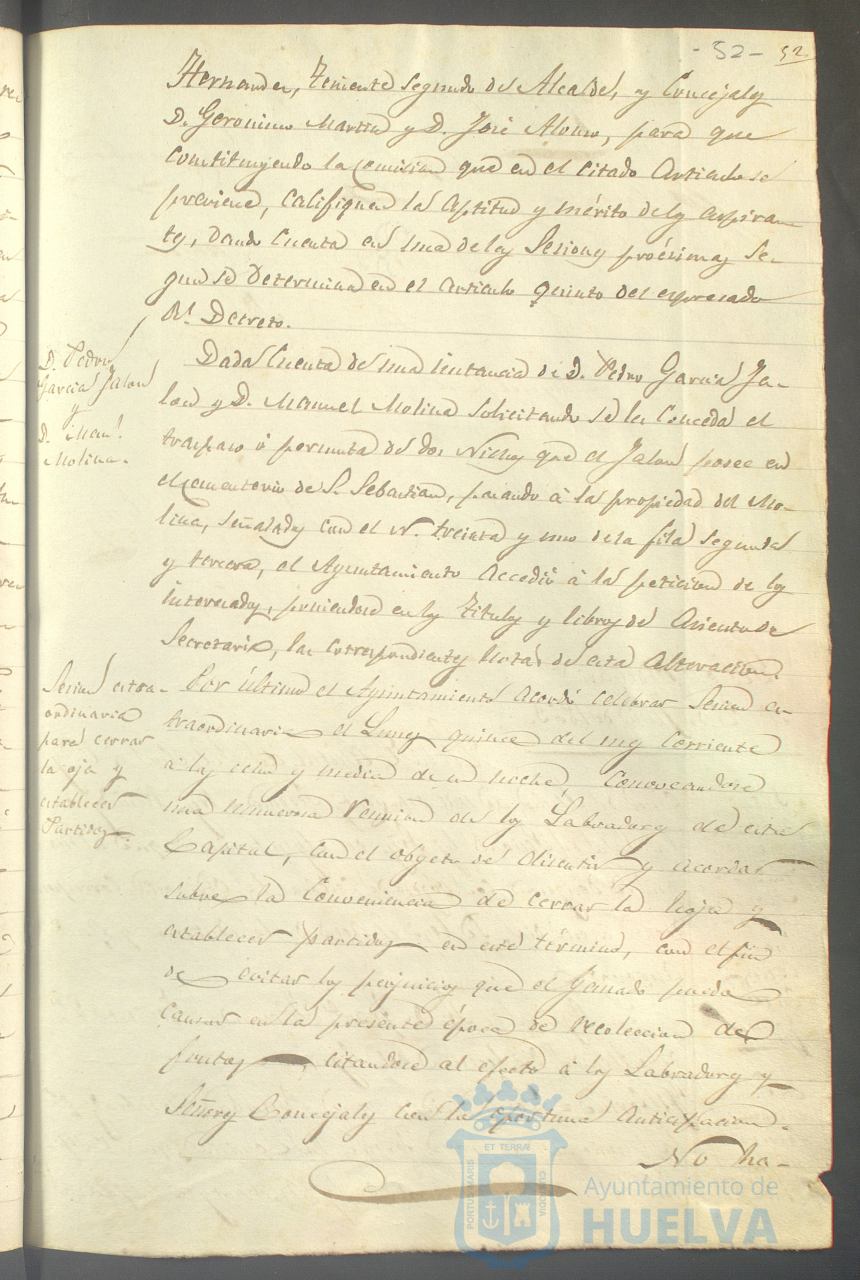 - 52 - 52
Hernandez, Teniente segundo de Alcalde, y Concejales
D. Geronimo Martin y D. José Alonso, para que
constituyendo la comision que en el citado Articulo se
previene, califiquen la aptitud y mérito de los aspiran-
tes, dando cuenta en una de las Sesiones proésimas se-
gun se determina en el articulo quinto del espresado
Rl. Decreto.
D. Pedro
Garcia Jalon
y
D. Manl.
Molina.
Dada cuenta de una instancia de D. Pedro Garcia Ja-
lon y D. Manuel Molina solicitando se les conceda el
traspaso ó permuta de dos Nichos que el Jalon posee en
el cementerio de S. Sebastian, pasando á la propiedad del Mo-
lina, señalados con el N. treinta y uno de la fila segunda
y tercera, el Ayuntamiento accedió á la peticion de los
interesados, poniendose en los titulos y libros de Asiento de
Secretaria, las correspondientes notas de esta alteracion.
Sesion estra-
ordinaria
para cerrar
la oja y
establecer
Partidos.
Por último el Ayuntamiento acordó celebrar Sesion es-
traordinaria el Lunes quince del mes corriente
á las ocho y media de su noche, convocandose
una numerosa reunion de los Labradores de esta
Capital, con el objeto de discutir y acordar
sobre la conveniencia de cerrar la hoja y
establecer partidos en este término, con el fin
de evitar los perjuicios que el ganado pueda
causar en la presente época de recoleccion de
frutos, citandose al efecto á los Labradores y
Señores Concejales con la oportuna anticipacion.
No ha-
PORTUS MARIS
ET TERRAE
CUSTODIA
Ayuntamiento de
HUELVA